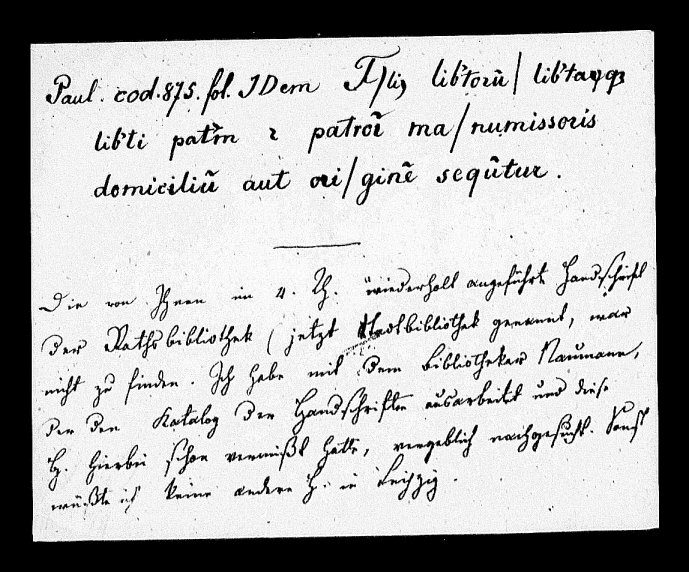 Paul. cod. 875. fol. IDem F/lij lib'torū/ lib'taꝝqꝫ
lib'ti pat'm ⁊ patroī ma/numissoris
domiciliū aut ori/ginē seqūtur.
Die von Ihnen im 4. Th. wiederholt angeführte Handschrift
der Rathsbibliothek (jetzt Stadtbibliothek genannt, war
nicht zu finden. Ich habe mit dem Bibliothekar Naumann,
der den Katalog der Handschriften ausarbeitet und diese
H. hierbei schon vermißt hatte, vergeblich nachgesucht. Sonst
wüßte ich keine andere H. in Leipzig.